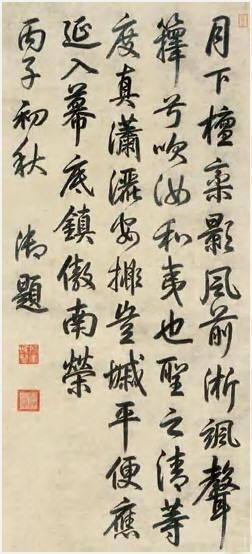 月下檀欒影風前淅颯聲
籜兮吹汝和夷也聖之清等
度真瀟灑安排豈墄平便應
延入幕底鎮傲南榮
丙子初秋 御題